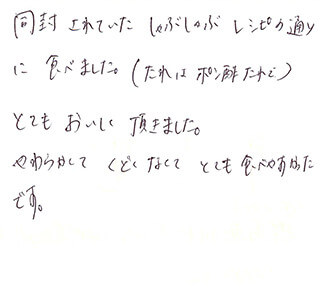 同封されていた しゃぶしゃぶ レシピの通り
に 食べました。(たれは ポン酢だれで)
とても おいしく 頂きました。
やわらかくて くどくなくて とても 食べやすかった
です。